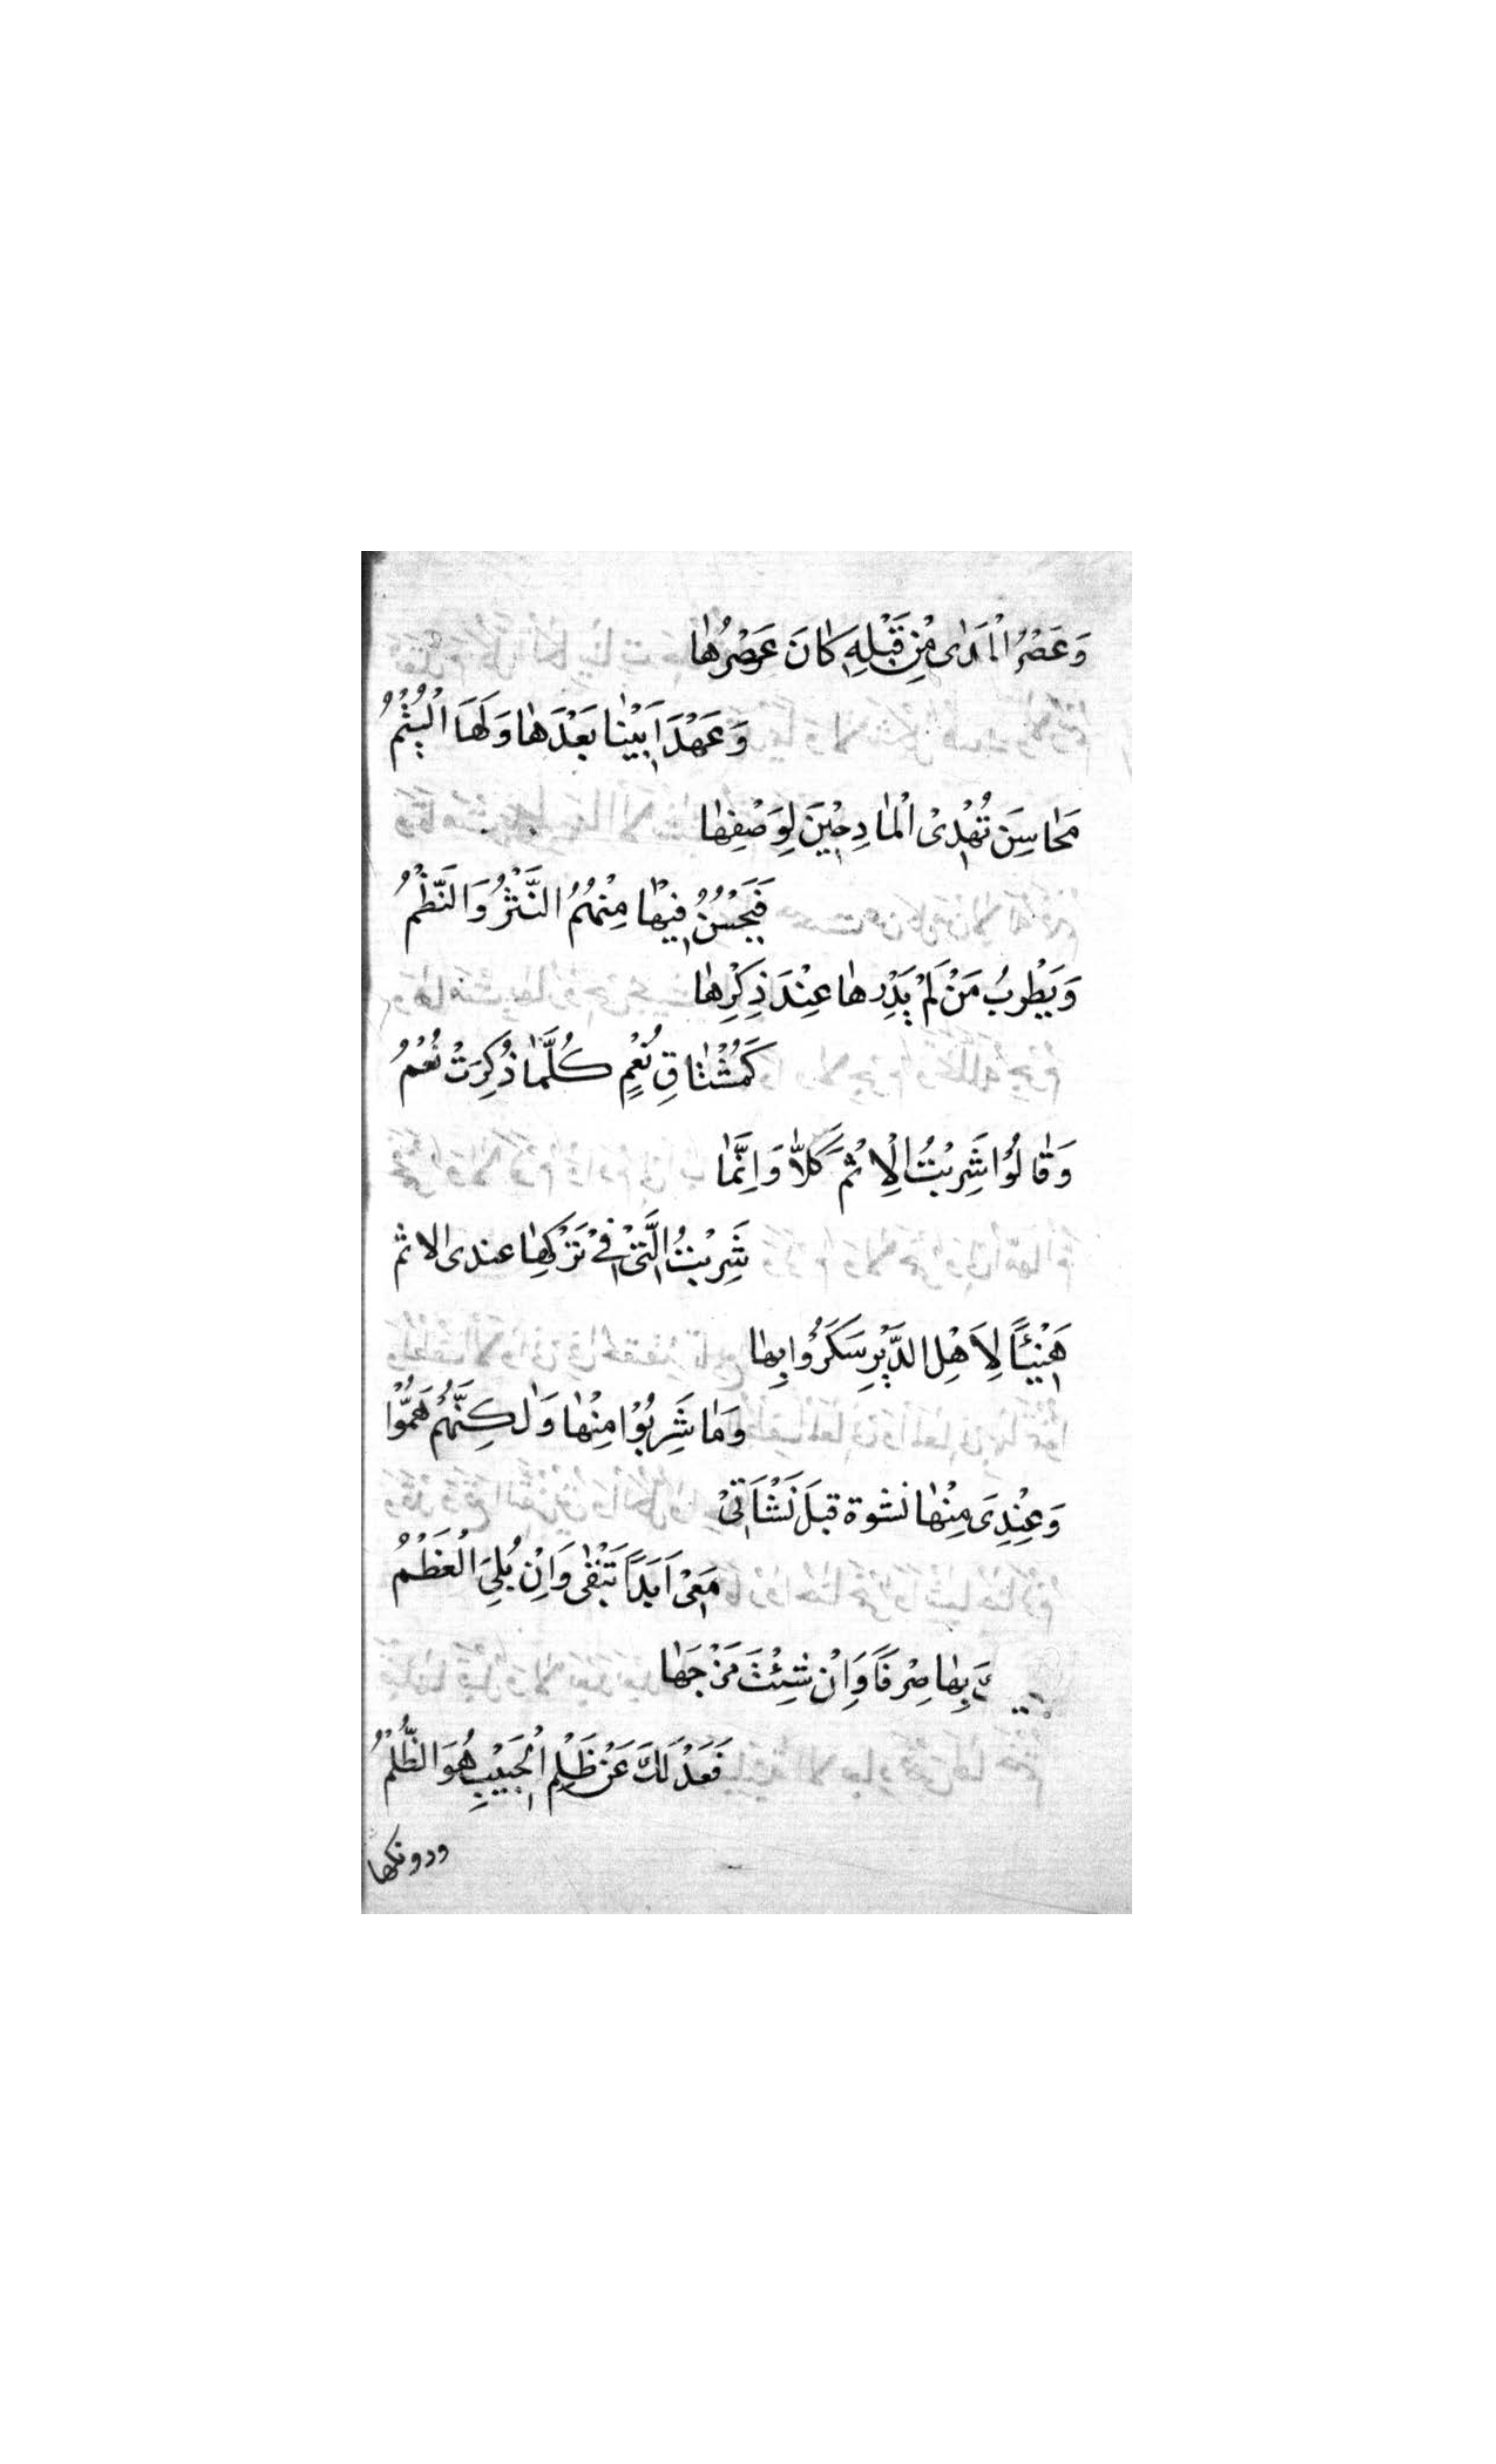 وَعَصْرُ الْمَدٰى مِنْ قَبْلِهِ كٰانَ عَصْرُهٰا
وَعَهْدَ اَبَيْنٰا بَعْدَهٰا وَلَهَا الْيُتْمُ
مَحٰاسِنَ تُهْدِىْ الْمٰادِحِيْنَ لِوَصْفِهٰا
فَيَحْسُنُ فِيهٰا مِنْهُمُ النَّثْرُ وَالنَّظْمُ
وَيَطْرِبُ مَنْ لَمْ يَدْرِهٰا عِنْدَ ذِكْرِهٰا
كَمُشْتٰاقِ نُعْمٍ كُلَّمٰا ذُكِرَتْ نُعْمُ
وَقٰالُوْا شَرِبْتُ الْاِثْمَ كَلاّٰ وَاِنَّمٰا
شَرِبْتُ الَّتِىْ فِىْ تَرْكِهٰا عندى الاثم
هَنِيْئًا لِاَهْلِ الدَّيْرِ سَكَرُوا بِهٰا
وَمٰا شَرِبُوْا مِنْهٰا وَلٰكِنَّهُمْ هَمُّوْا
وَعِنْدِىَ مِنْهٰا نشوة قبلَ نَشْاَتِىْ
مَعِىْ اَبَدًا تَبْقٰى وَاِنْ بُلِىَ الْعَظْمُ
بِهٰا صِرْفًا وَاِنْ شِئْتَ مَزْجَهٰا
فَعَدْلَكَ عَنْ ظَلْمِ الْحَبِيْبِ هُوَ الظُّلْمُ
ودونكها